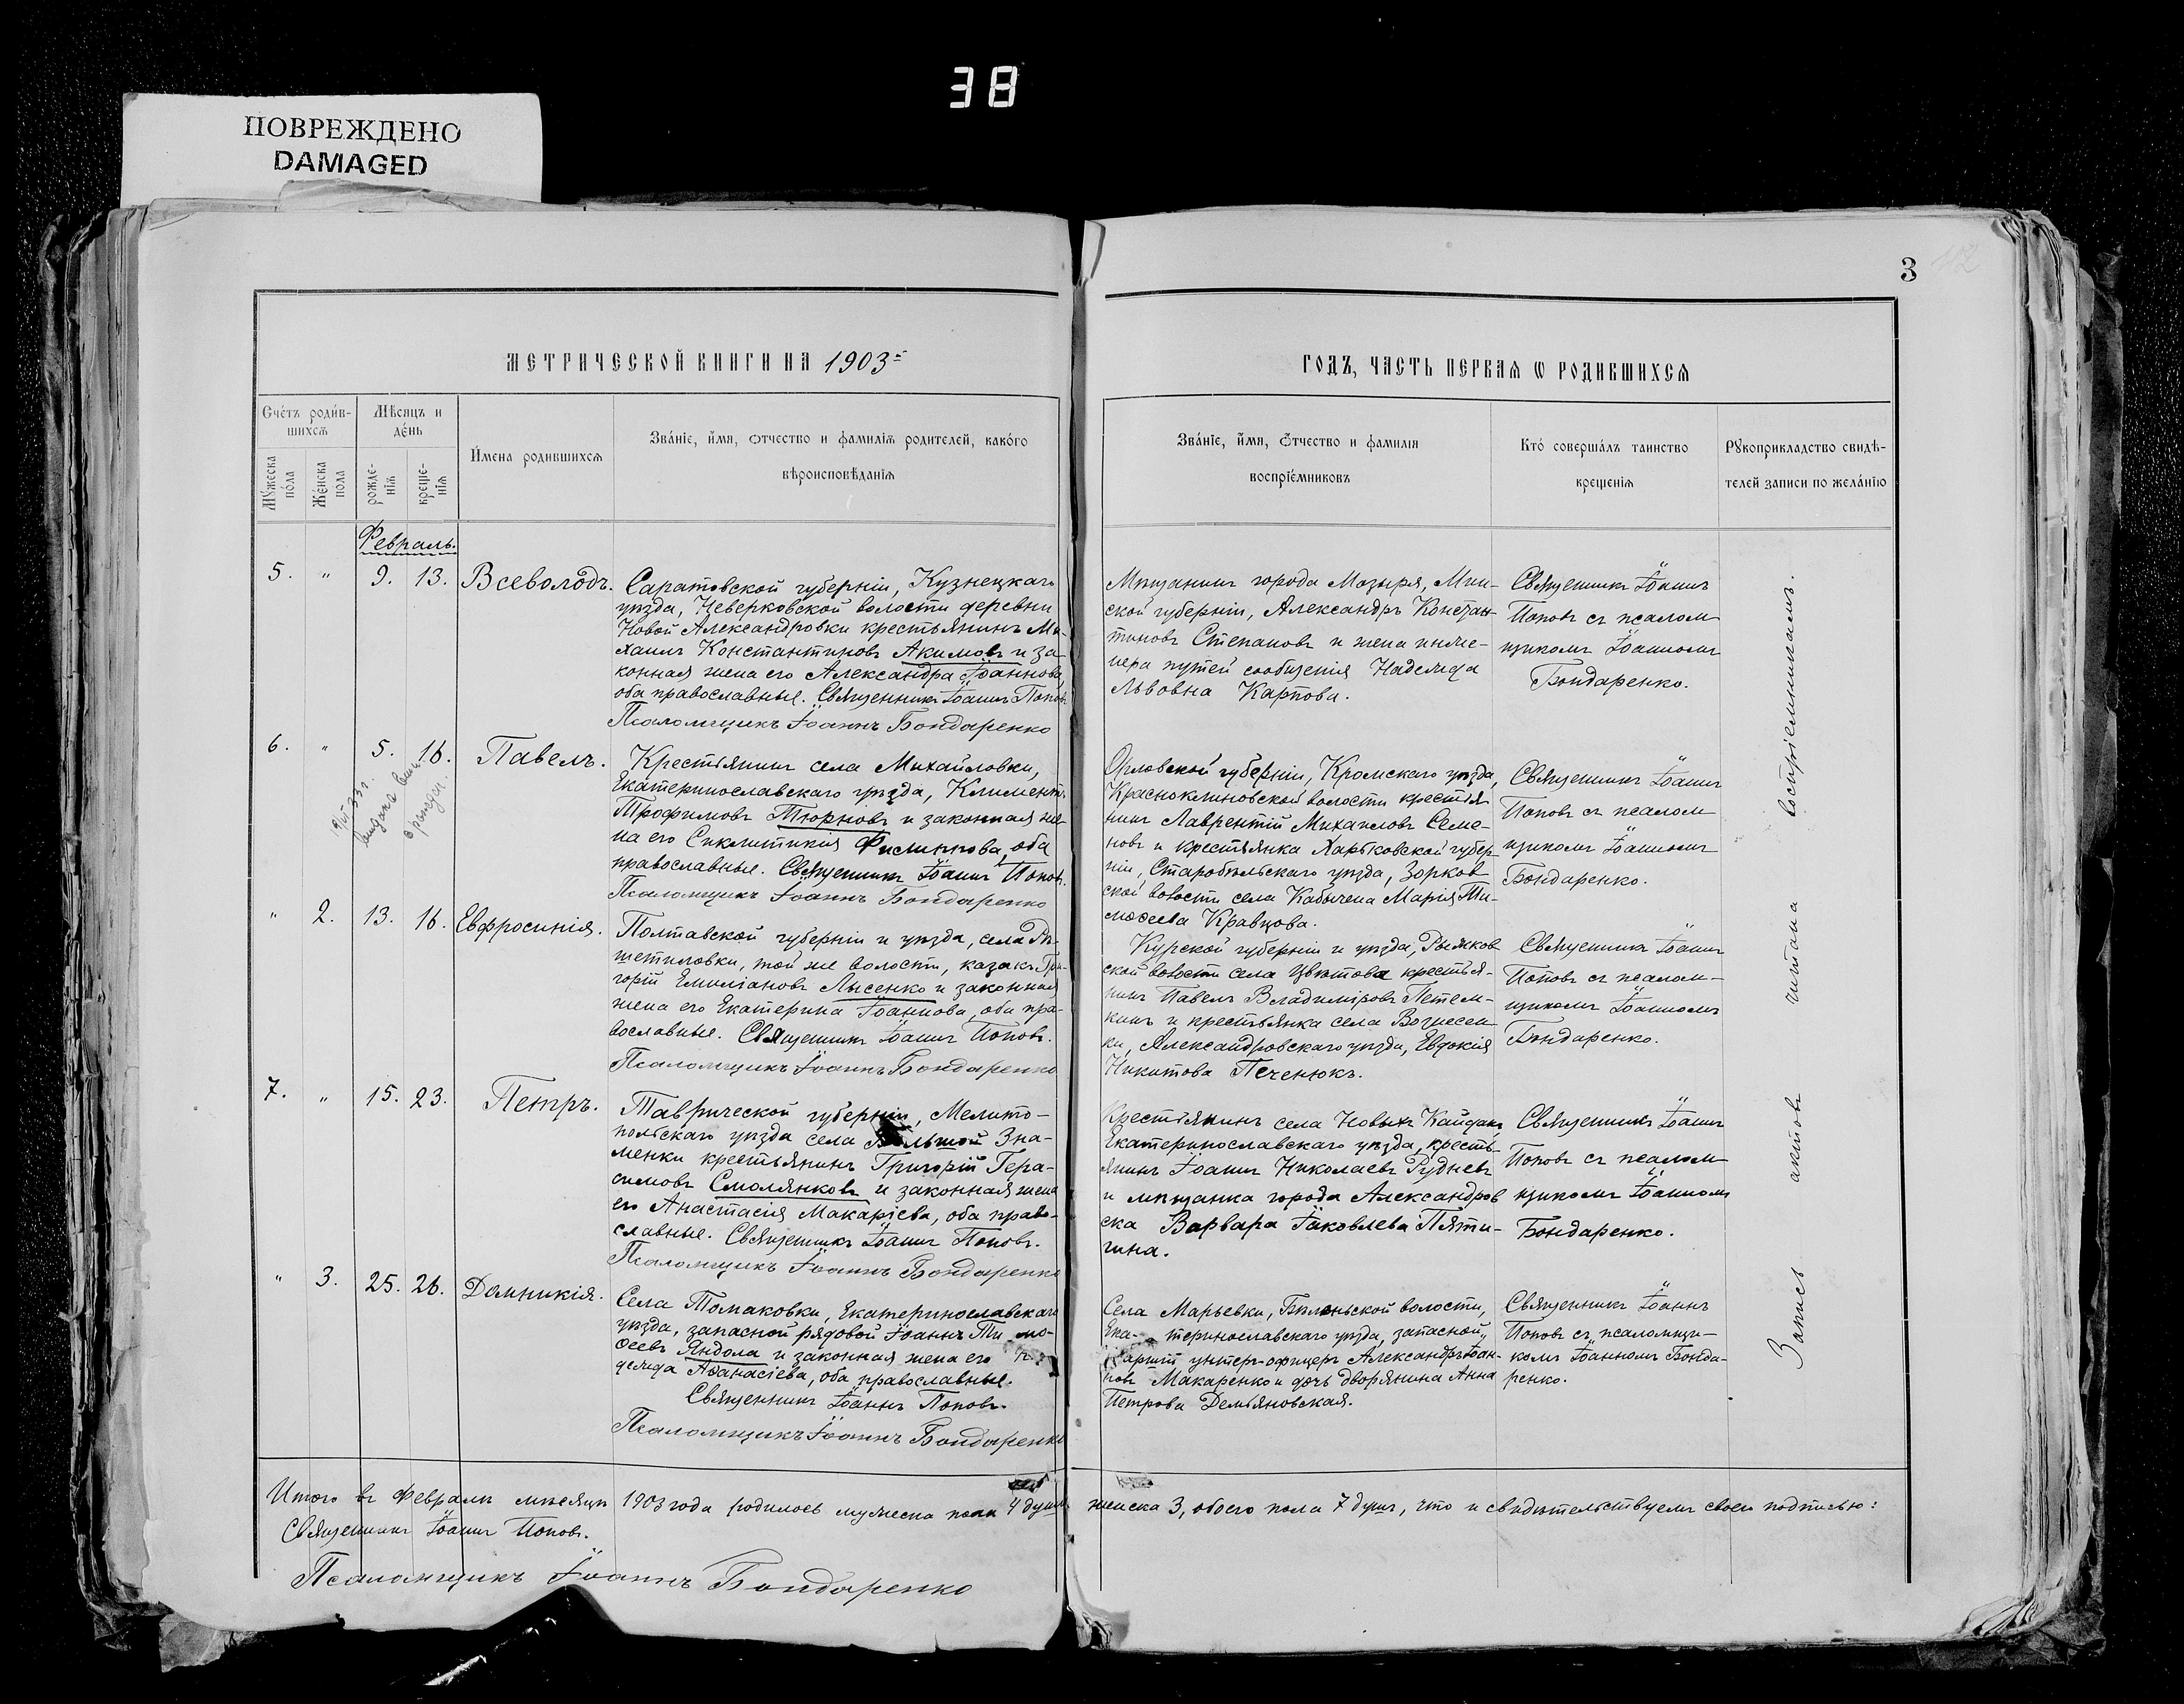 38
ПОВРЕЖДЕНО
DAMAGED
3
МЕТРИЧЕСКОЙ КНИГИ НА 1903
ГОДЪ, ЧАСТЬ ПЕРВАѦ Ѡ РОДИВШИХСѦ
Счетъ родив-
шихсѧ
Мужеска
пола
Женска
пола
Мѣсяцъ и
день
рожде-
нїѧ
креще-
нїѧ
Имена родившихсѧ
Званїе, имя, отчество и фамилїѧ родителей, какого
вѣроисповѣданїѧ
Званїе, имя, отчество и фамилїя
воспрїемниковъ
Кто совершалъ таинство
крещенїѧ
Рукоприкладство свидѣ-
телей записи по желанїю
Февраль.
5. " 9. 13. Всеволодъ.
Саратовской губерніи, Кузнецкаго
уѣзда, Неверковской волости деревни
Новой Александровки крестьянинъ Ми-
хаилъ Константиновъ Акимовъ и за-
конная жена его Александра Іоаннова,
оба православные. Священникъ Іоаннъ Поповъ
Псаломщикъ Іоаннъ Бондаренко
Мѣщанинъ города Мозыря, Мин-
ской губерніи, Александръ Констан-
тиновъ Степановъ и жена инже-
нера путей сообщенія Надежда
Львовна Карпова.
Священникъ Іоаннъ
Поповъ съ псалом-
щикомъ Іоанномъ
Бондаренко.
6. " 5. 16. Павелъ.
Крестьянинъ села Михайловки,
Екатеринославскаго уѣзда, Климентъ
Трофимовъ Тюрновъ и законная же-
на его Синклитикія Филиппова, оба
православные. Священникъ Іоаннъ Поповъ.
Псаломщикъ Іоаннъ Бондаренко
Орловской губерніи, Кромскаго уѣзда,
Красноклиновской волости крестья-
нинъ Лаврентій Михаиловъ Семе-
новъ и крестьянка Харьковской губер-
ніи, Старобѣльскаго уѣзда, Зорков-
ской волости села Кабычена Марія Ти-
моѳеева Кравцова.
Священникъ Іоаннъ
Поповъ съ псалом-
щикомъ Іоанномъ
Бондаренко.
" 2. 13. 16. Евфросинія.
Полтавской губерніи и уѣзда, села Рѣ-
шетиловки, той же волости, казакъ Гри-
горій Емиліановъ Лысенко и законная
жена его Екатерина Іоаннова, оба пра-
вославные. Священникъ Іоаннъ Поповъ.
Псаломщикъ Іоаннъ Бондаренко
Курской губерніи и уѣзда, Рыжков-
ской волости села Цвѣтова крестья-
нинъ Павелъ Владиміровъ Петем-
кинъ и крестьянка села Вознесен-
ки, Александровскаго уѣзда, Евдокія
Никитова Печенюкъ.
Священникъ Іоаннъ
Поповъ съ псалом-
щикомъ Іоанномъ
Бондаренко.
7. " 15. 23. Петръ.
Таврической губерніи, Мелито-
польскаго уѣзда села Большой Зна-
менки крестьянинъ Григорій Гера-
симовъ Смолянковъ и законная жена
его Анастасія Макаріева, оба право-
славные. Священникъ Іоаннъ Поповъ.
Псаломщикъ Іоаннъ Бондаренко
Крестьянинъ села Новыхъ Кайдакъ
Екатеринославскаго уѣзда, кресть-
янинъ Іоаннъ Николаевъ Рудневъ
и мѣщанка города Александров-
ска Варвара Іаковлева Пяти-
гина.
Священникъ Іоаннъ
Поповъ съ псалом-
щикомъ Іоанномъ
Бондаренко.
" 3. 25. 26. Домникія.
Села Томаковки, Екатеринославскаго
уѣзда, запасной рядовой Іоаннъ Тимо-
ѳеевъ Яндола и законная жена его
дежда Аѳанасіева, оба православные.
Священникъ Іоаннъ Поповъ.
Псаломщикъ Іоаннъ Бондаренко
Села Марьевки, Бѣленьской волости,
Ека-теринославскаго уѣзда, запасной
старшій унтеръ-офицеръ Александръ Іоан-
новъ Макаренко и дочь дворянина Анна
Петрова Демьяновская.
Священникъ Іоаннъ
Поповъ съ псаломщи-
комъ Іоанномъ Бонда-
ренко.
Запись актовъ читана воспріемникамъ.
Итого въ Февралѣ мѣсяцѣ 1903 года родилось мужеска пола 4 душъ женска 3, обоего пола 7 душъ, что и свидѣтельствуемъ своею подписью:
Священникъ Іоаннъ Поповъ.
Псаломщикъ Іоаннъ Бондаренко